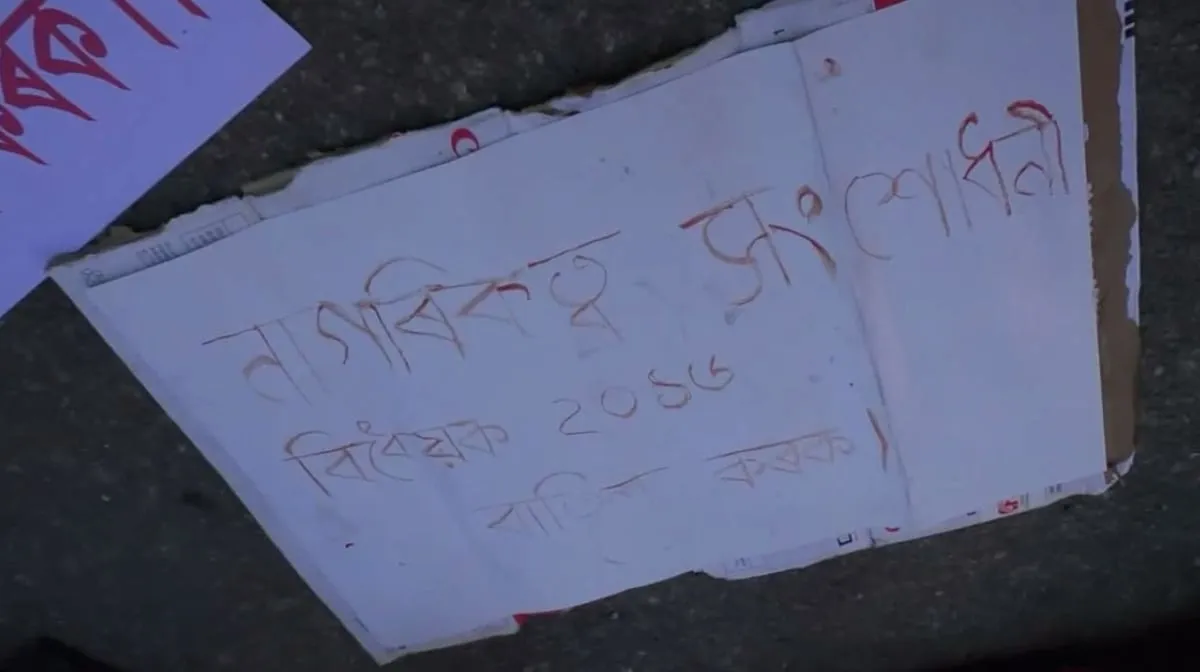 নাগৰিকত্ব সংশোধনী
বিধেয়ক ২০১৬
বাতিল কৰক ।